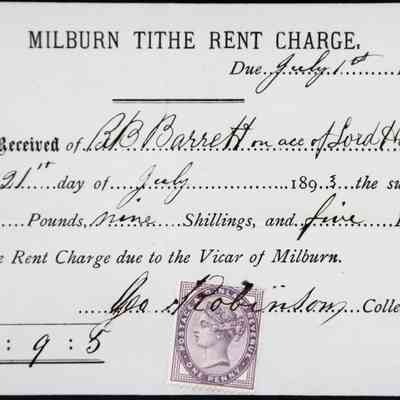 MILBURN TITHE RENT CHARGE.
Due July 1st
Received of R B Barrett on acc of Lord
21st day of July 1893 the su
Pounds, nine Shillings, and five
Rent Charge due to the Vicar of Milburn.
Geo Robinson Colle
: 9 : 5
POSTAGE AND INLAND REVENUE
ONE PENNY